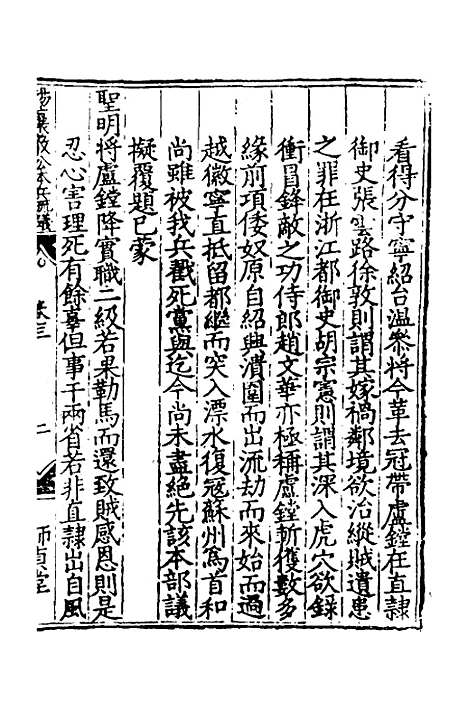 看得分守寧紹台温叅將今革去冠帶盧鏜在直隷
御史張雲路徐敦則謂其嫁禍鄰境欲治縱賊遺患
之罪在浙江都御史胡宗憲則謂其深入虎穴欲錄
衝冒鋒敵之功侍郎趙文華亦極稱盧鏜斬獲數多
緣前項倭奴原自紹興潰圍而出流劫而來始而過
越徽寧直抵留都繼而突入漂水復冦蘇州爲首和
尚雖被我兵戳死黨與迄今尚未盡絕先該本部議
擬覆題已蒙
聖明將盧鏜降實職二級若果勒馬而還致賊感恩則是
忍心害理死有餘辜但事干兩省若非直隷出自風
楊襄毅公本兵疏議 卷三 二 師貞堂